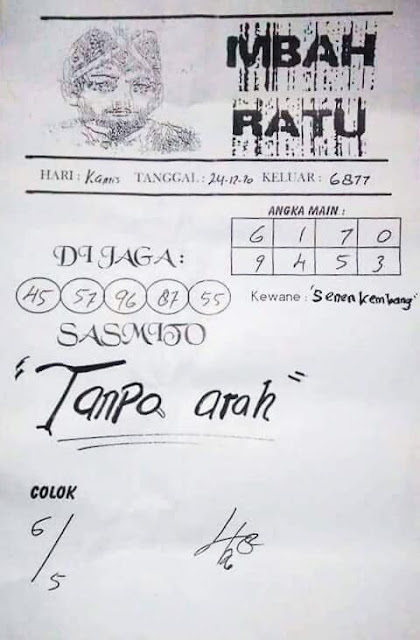 MBAH
RATU
HARI : Kamis TANGGAL : 24-12-20 KELUAR : 6877
ANGKA MAIN :
6 1 7 0
9 4 5 3
DI JAGA :
45 57 96 87 55
Kewane : "Senen kembang"
SASMITO
"Tanpa arah"
COLOK
6/5